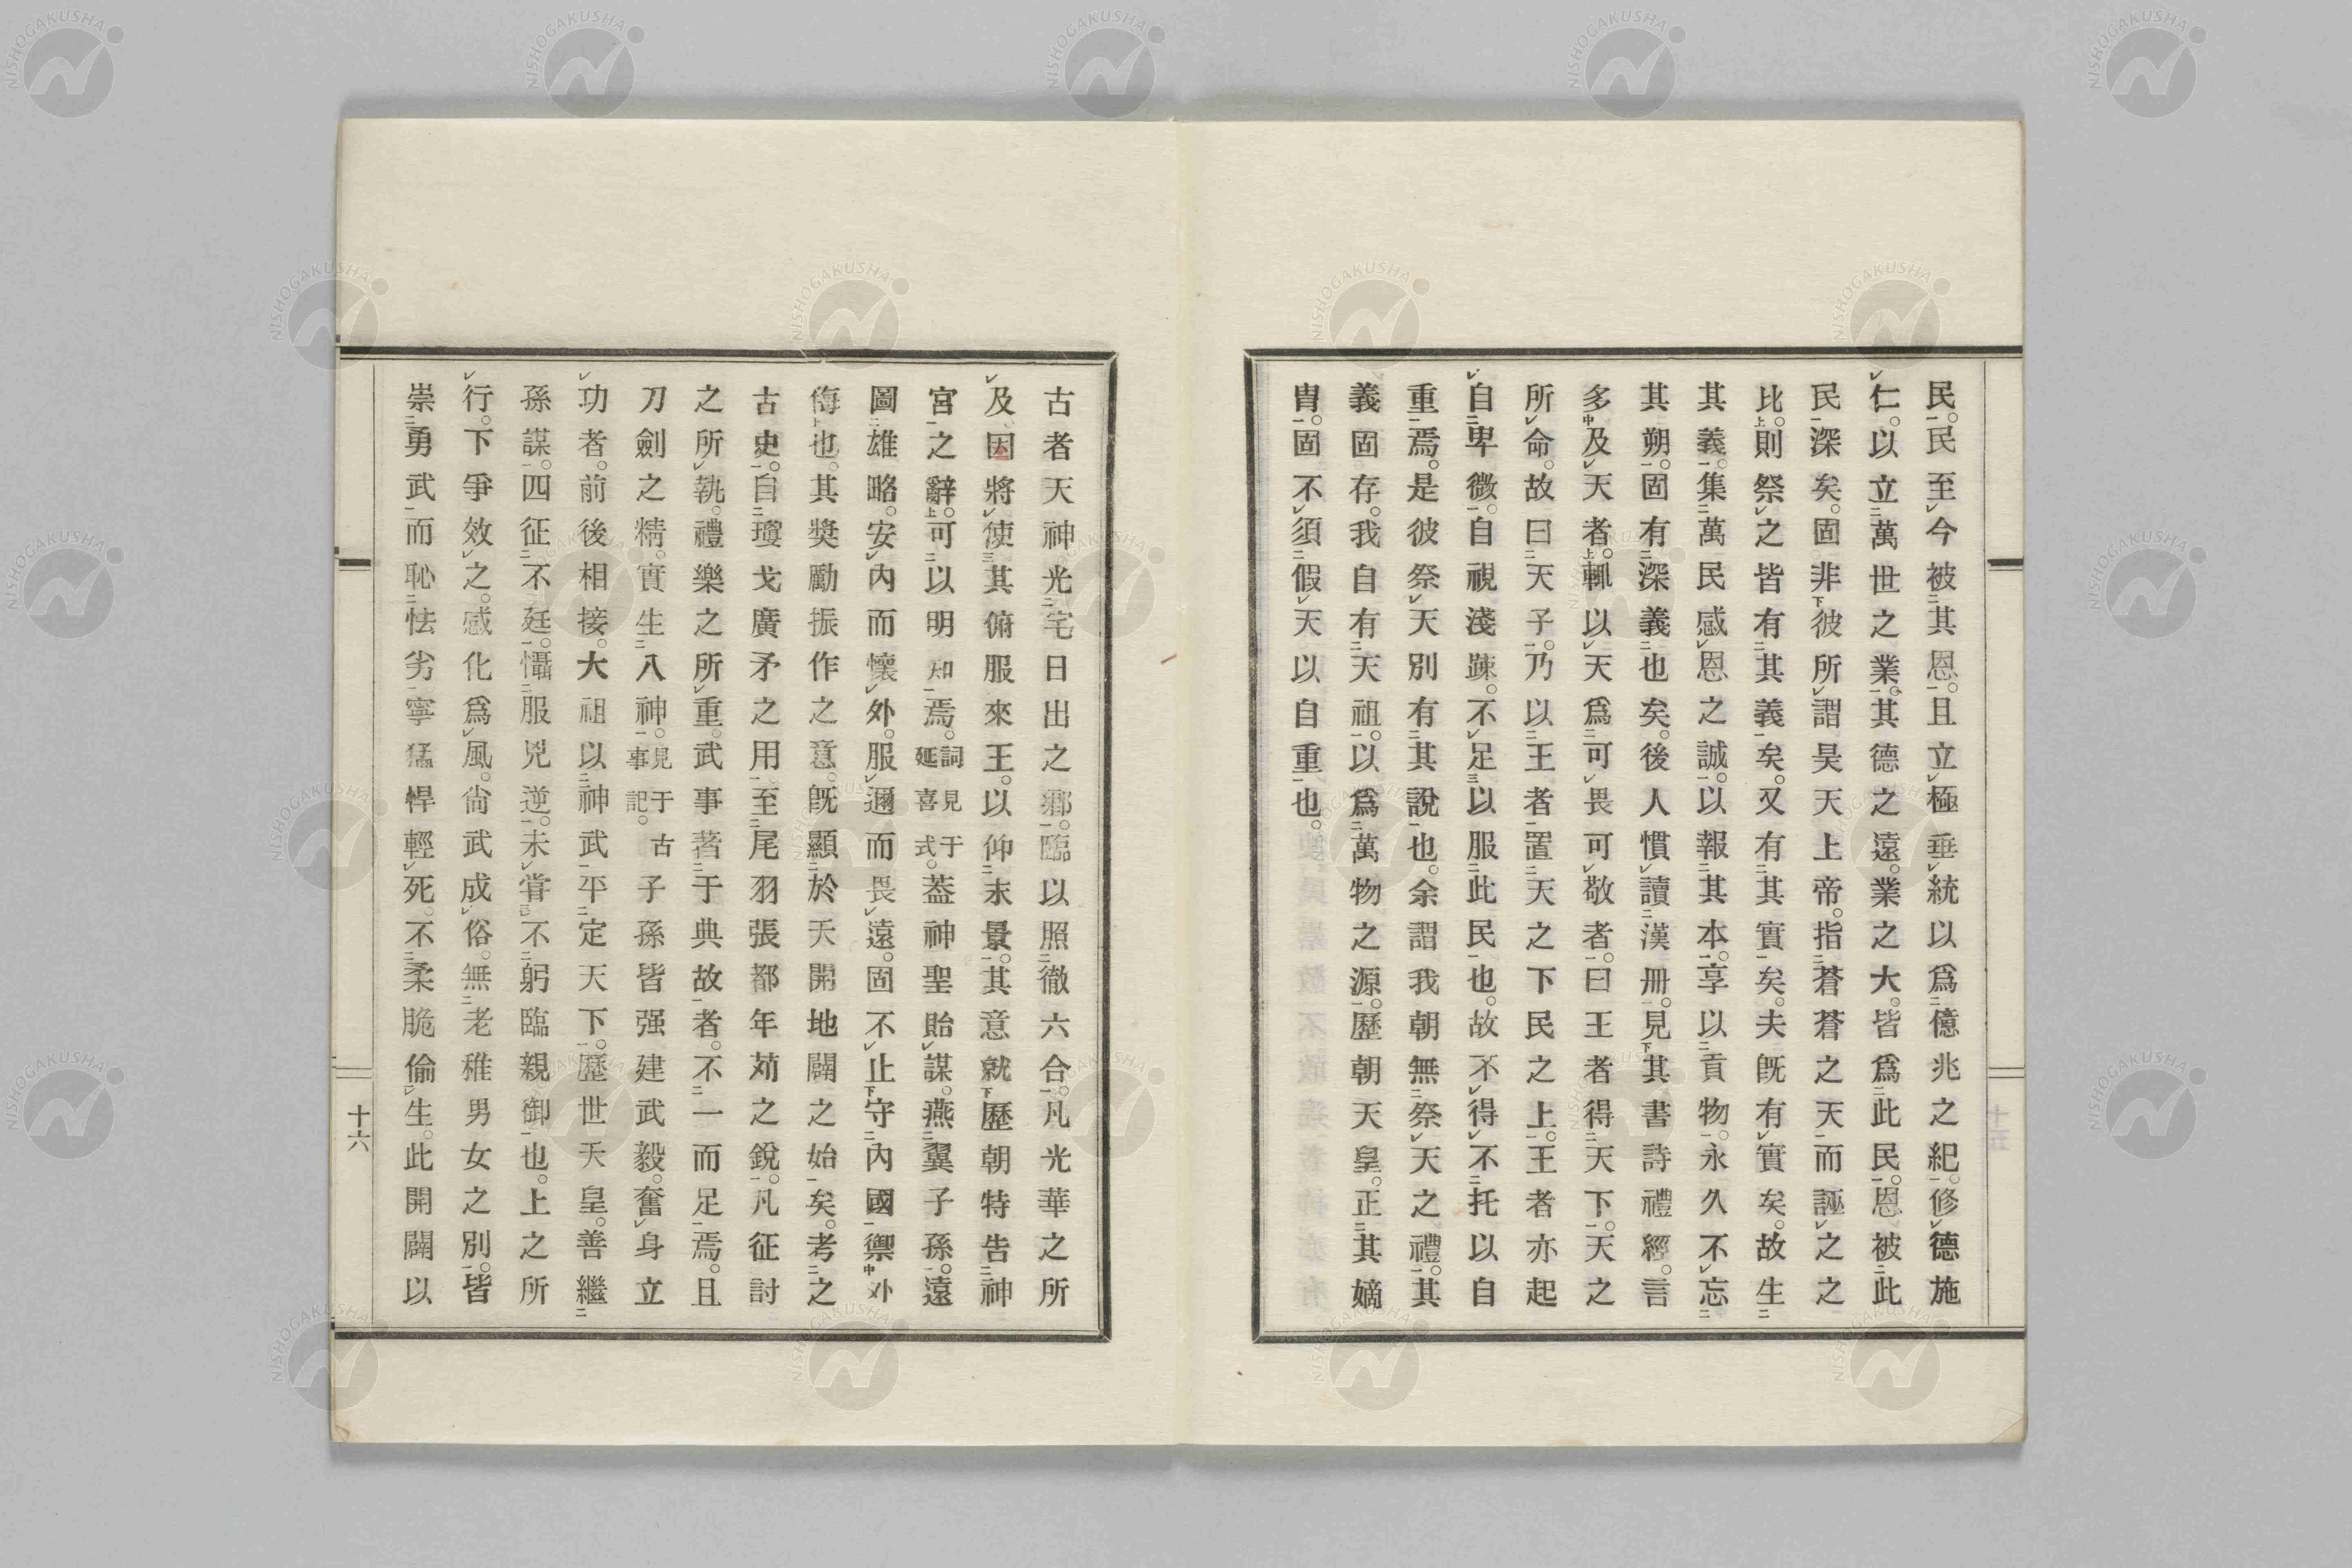 民。民至今被其恩。且立極垂統以爲億兆之紀。修德施
仁。以立萬世之業。其德之遠。業之大。皆爲此民。恩被此
民深矣。固非彼所謂昊天上帝。指蒼蒼之天而誣之之
比。則祭之皆有其義矣。又有其實矣。夫既有實矣。故生
其義。集萬民感恩之誠。以報其本。享以貢物。永久不忘
其朔。固有深義也矣。後人慣讀漢冊。見其書詩禮經。言
多及天者。輒以天爲可畏可敬者。曰王者得天下。天之
所命。故曰天子。乃以王者置天之下民之上。王者亦起
自卑微。自視淺踈。不足以服此民也。故不得不托以自
重焉。是彼祭天別有其說也。余謂我朝無祭天之禮。其
義固存。我自有天祖。以爲萬物之源。歷朝天皇。正其嫡
胄。固不須假天以自重也。
古者天神光宅日出之鄕。臨以照徹六合。凡光華之所
及因將使其俯服來王。以仰末景。其意就歷朝特告神
宮之辭。可以明知焉。詞見于延喜式。葢神聖貽謀。燕翼子孫。遠
圖雄略。安內而懷外。服邇而畏遠。固不止守內國禦外
侮也。其奬勵振作之意。旣顯於天開地闢之始矣。考之
古史。自瓊戈廣矛之用。至尾羽張都牟苅之銳。凡征討
之所執。禮樂之所重。武事著于典故者。不一而足焉。且
刀劍之精。實生八神。見于古事記。子孫皆强建武毅。奮身立
功者。前後相接。大祖以神武平定天下。歷世天皇。善繼
孫謀。四征不廷。懾服兇逆。未甞不躬臨親御也。上之所
行。下爭效之。感化爲風。尙武成俗。無老稚男女之別。皆
崇勇武而恥怯劣寧猛悍輕死。不柔脆偷生。此開闢以
十六
NISHOGAKUSHA